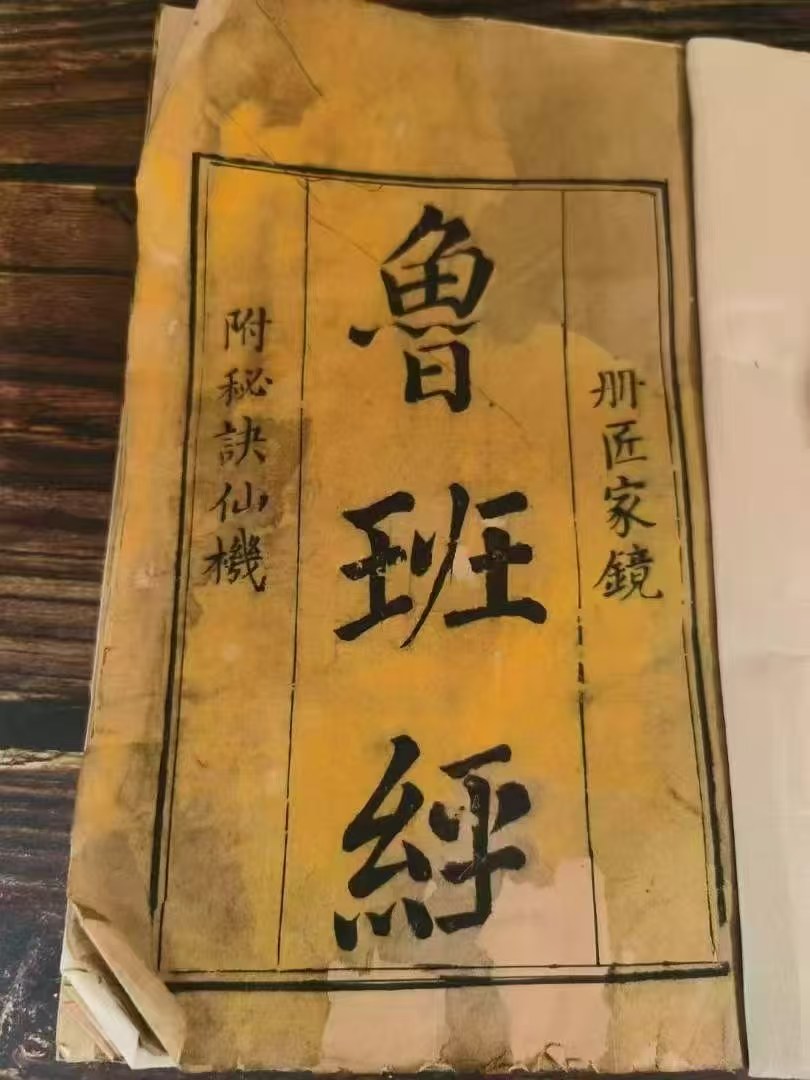 册匠家鏡
魯班經
附秘訣仙機